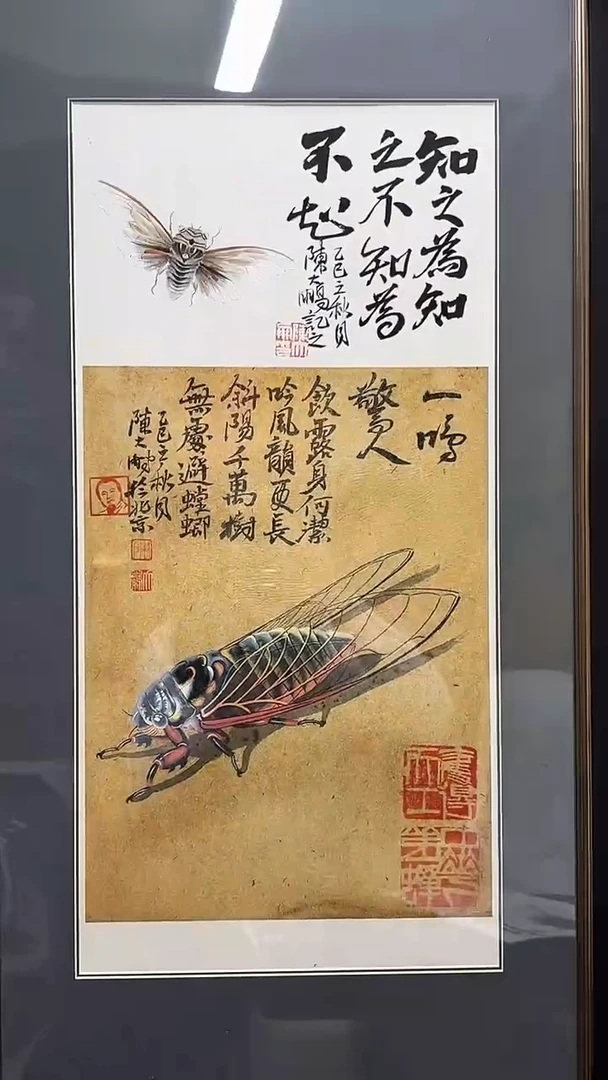 知之為知
之不知為
不
乙巳立秋月
陳大鵬記之
一鳴
驚人
飲露身何潔
吟風韻更長
斜陽千萬樹
無處避螳螂
乙巳立秋月
陳大鵬於北京